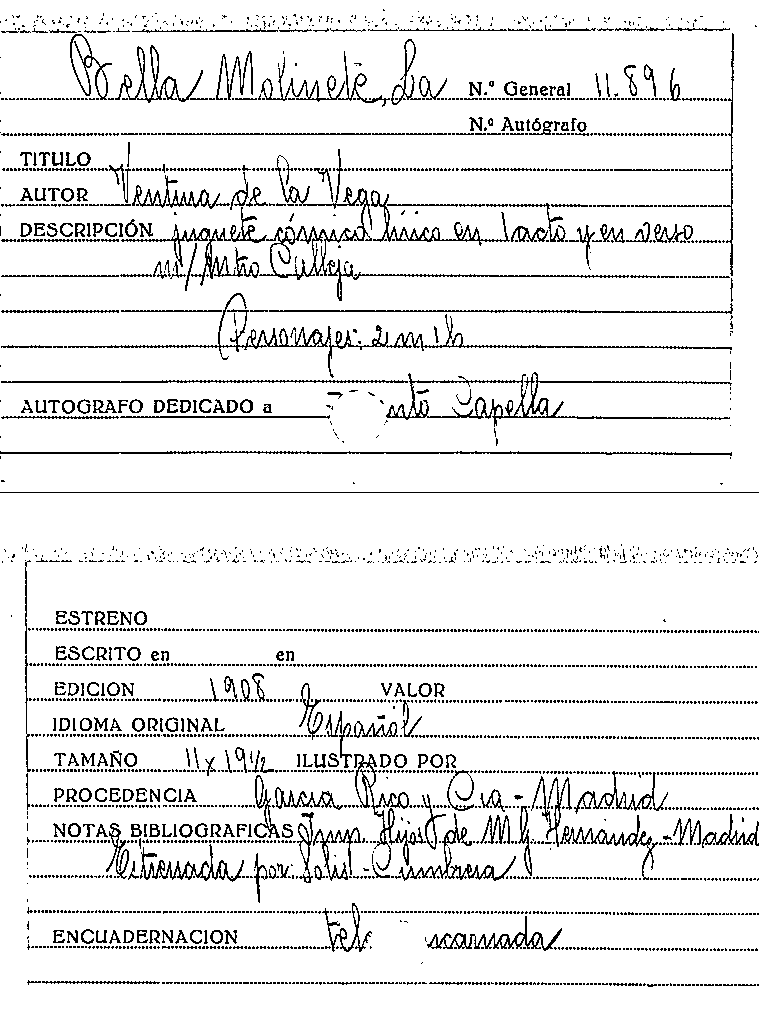 Bella Molinete, La N.º General 11.896
N.º Autógrafo
TITULO
AUTOR Ventura de la Vega
DESCRIPCIÓN juguete cómico lírico en 1 acto y en verso
m/ Mtro Calleja
Personajes: 2 m 1 h
AUTOGRAFO DEDICADO a Capella
ESTRENO
ESCRITO en en
EDICION 1908 VALOR
IDIOMA ORIGINAL Español
TAMAÑO 11 x 19 1/2 ILUSTRADO POR
PROCEDENCIA Garcia Rico y Cia - Madrid
NOTAS BIBLIOGRAFICAS Imp. Hijos de M. G. Hernández - Madrid
Estrenada por: Solis -
ENCUADERNACION